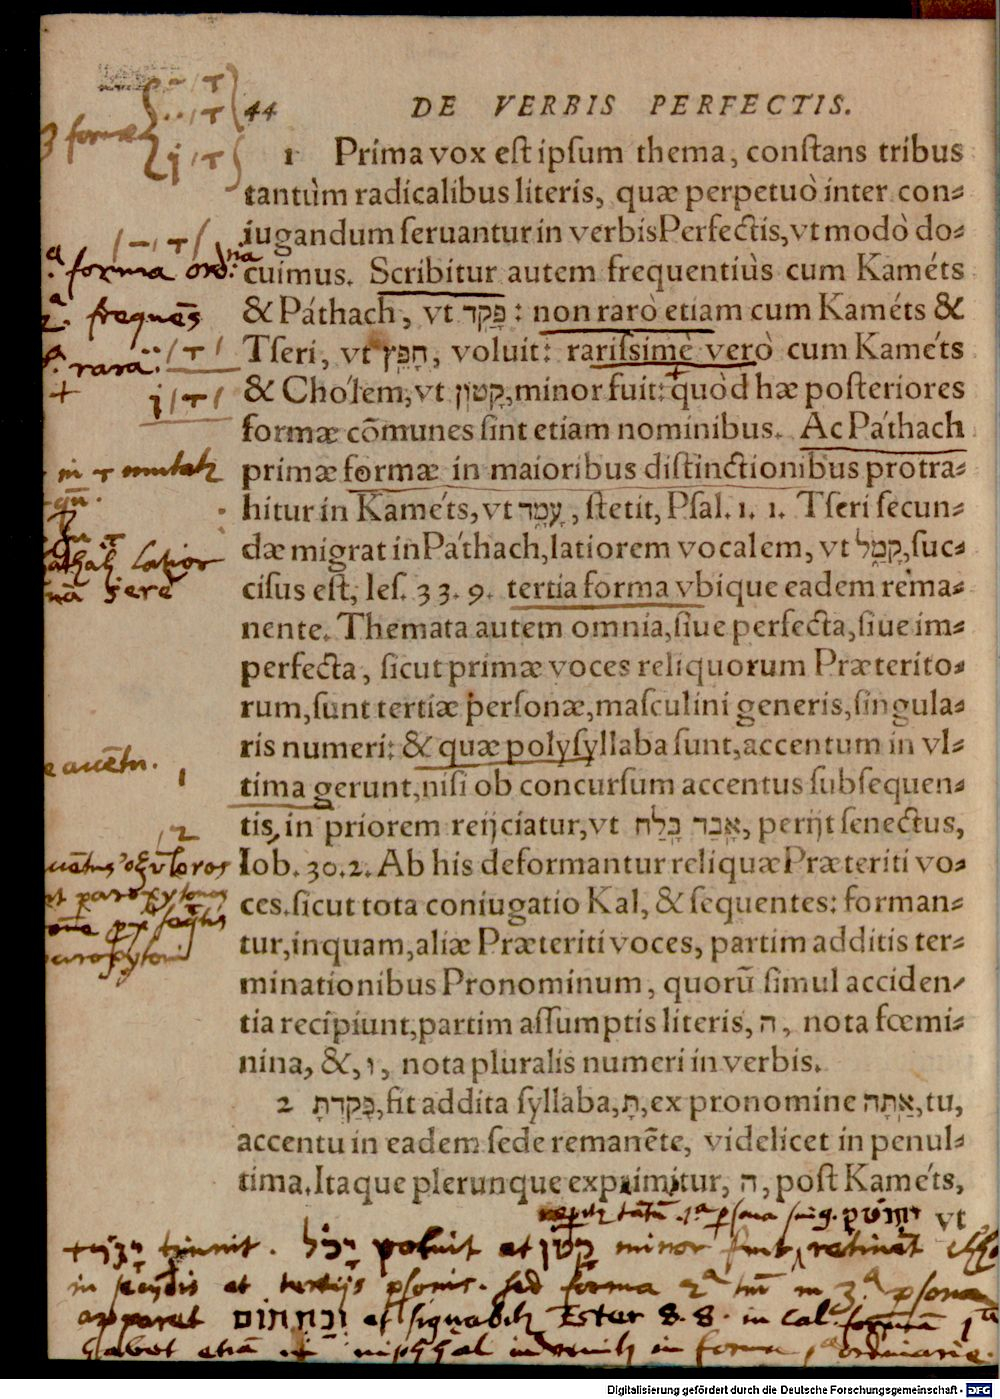 44 DE VERBIS PERFECTIS.
1 Prima vox eſt ipſum thema, conſtans tribus
tantùm radicalibus literis, quæ perpetuò inter con⸗
iugandum ſeruantur in verbis Perfectis, vt modò do⸗
cuimus. Scribitur autem frequentiùs cum Kaméts
& Páthach, vt פָּקַד : non rarò etiam cum Kaméts &
Tſeri, vt חָפֵץ, voluit: rariſsimè verò cum Kaméts
& Chólem, vt קָטֹן, minor fuit: quòd hæ poſteriores
formæ cõmunes ſint etiam nominibus. Ac Páthach
primæ formæ in maioribus diſtinctionibus protra⸗
hitur in Kaméts, vt עָמָד, ſtetit, Pſal. 1. 1. Tſeri ſecun⸗
dæ migrat in Páthach, latiorem vocalem, vt קָמַל, ſuc⸗
ciſus eſt, Ieſ. 33. 9. tertia forma vbique eadem rema⸗
nente. Themata autem omnia, ſiue perfecta, ſiue im⸗
perfecta, ſicut primæ voces reliquorum Præterito⸗
rum, ſunt tertiæ perſonæ, maſculini generis, ſingula⸗
ris numeri: & quæ polyſyllaba ſunt, accentum in vl⸗
tima gerunt, niſi ob concurſum accentus ſubſequen⸗
tis, in priorem reijciatur, vt אָבַד כָּלַח, perijt ſenectus,
Iob. 30. 2. Ab his deformantur reliquæ Præteriti vo⸗
ces. ſicut tota coniugatio Kal, & ſequentes: forman⸗
tur, inquam, aliæ Præteriti voces, partim additis ter⸗
minationibus Pronominum, quorũ ſimul acciden⸗
tia recipiunt, partim aſſumptis literis, ה, nota fœmi⸗
nina, &, ו, nota pluralis numeri in verbis.
2 פָּקַדְתָּ, fit addita ſyllaba, תָּ, ex pronomine אַתָּה, tu,
accentu in eadem ſede remanẽte, videlicet in penul⸗
tima. Itaque plerunque exprimitur, ה, poſt Kaméts,
vt
3 formæ
forma ord:na
freques̄
rara
+
in ד mutatz
Latior
Sere
1
12
tinnit. יכל potuit et קטן minor fuit retinēt
in et tertijs psonis. sed forma 2ª tm̄ in 3.ª psona
apparet et Ester 8. 8. in Cal formam 1ª
habet etiā in niphhal in forma ordinarie.
Digitalisierung gefördert durch die Deutsche Forschungsgemeinschaft - DFG